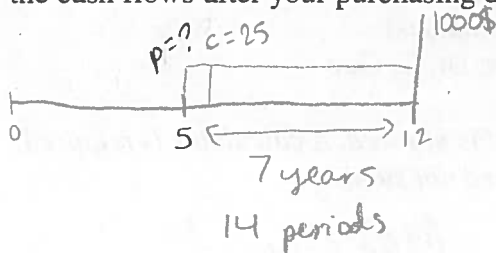 the cash flows after your purchasing
1000$
P=? C=25
0 5 12
7 years
14 periods